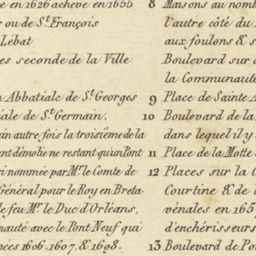 e en 1626 achevé en 1655
r ou de St. François
Lébat
es seconde de la Ville
Abbatiale de St. Georges
iale de St. Germain.
in autre fois la troisieme de la
ent démolie ne restant qu'un Pont
i nommée par Mr. le Comte de
Général pour le Roy en Breta-
le feu Mr. le Duc d'Orléans,
nauté avec le Pont Neuf qui
nces 1606. 1607. & 1608.
8 Maisons au nomb
l'autre côté du
aux foulons & s
Boulevard sur
la Communaute
9 Place de Sainte A
10 Boulevard de la
dans lequel il y
11 Place de la Motte
12 Places sur la C
Courtine & de
vénales en 165
d'enchérisseurs
13 Boulevard de Po